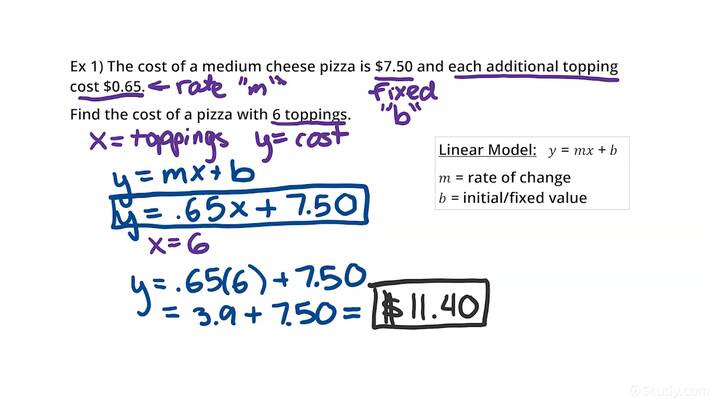 Ex 1) The cost of a medium cheese pizza is $7.50 and each additional topping
cost $0.65. ← rate "m"
fixed
"b"
Find the cost of a pizza with 6 toppings.
x = toppings y = cost
y = mx + b
y = .65x + 7.50
x = 6
y = .65(6) + 7.50
= 3.9 + 7.50 = $11.40
Linear Model: y = mx + b
m = rate of change
b = initial/fixed value
Study.com